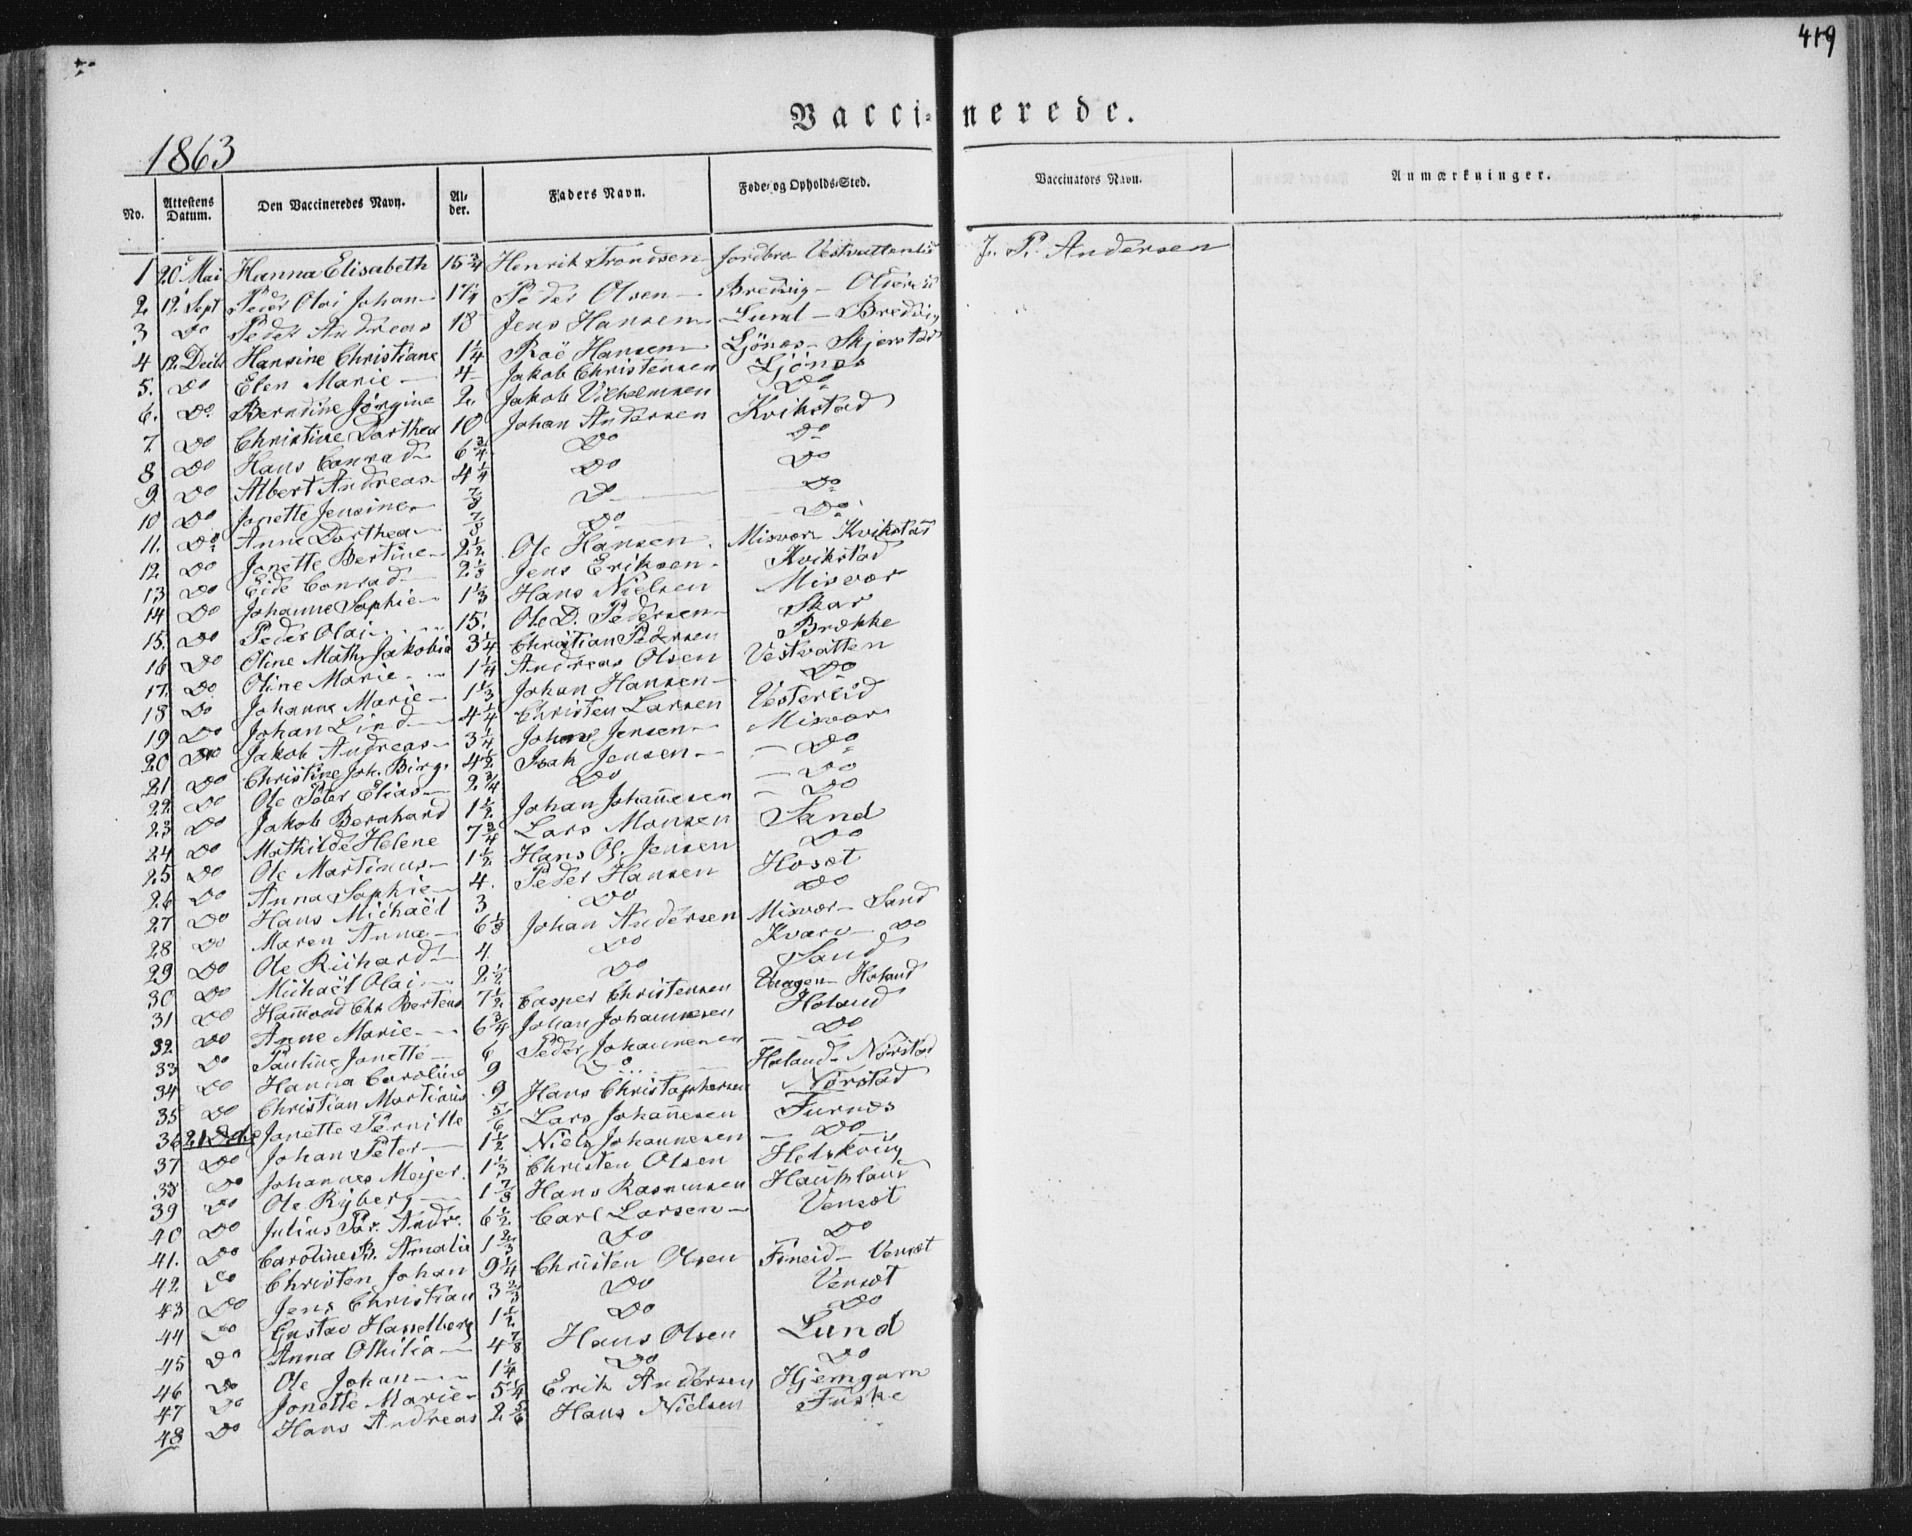 419
Vaccinerede.
1863
No. Attestens Datum. Den Vaccineredes Navn. Alder. Faders Navn. Føde- og Opholds-Sted. Vaccinators Navn. Anmærkninger.
1 20 Mai Hanna Elisabeth 15 3/4 Henrik Trondsen Jordbro Vestvatten J. P. Andersen
2 12 Sept Peder Olai Johan 17 1/4 Peder Olsen Bredvig
3 Do Peder Andreas 18 Jens Hansen Lund - Bredvig
4 12. Decbr Hansine Christiane 1 1/4 Roë Hansen Ljönes - Skjerstad
5. Do Elen Marie 4 Jakob Christensen Ljönes
6. Do Berndine Jörgine 2. Jakob Vilhelmsen Do
7 Do Christine Dorthea 10 Johan Andersen Kvikstad
8 Do Hans Conrad 6 3/4 Do Do
9. Do Albert Andreas 4 1/4 Do Do
10 Do Jonette Jensine 7/8 Do Do
11. Do Anne Dorthea 7/8 Do Do
12 Do Jonette Bertine 2 1/2 Ole Hansen Misvær Kvikstad
13 Do Eide Conrad 2 1/3 Jens Eriksen Kvikstad
14 Do Johanne Sophie 1 1/3 Hans Nielsen Misvær
15. Do Peder Olai 15. Ole D. Pedersen Skar
16 Do Oline Math. Jakobia 3 1/4 Christian Pedersen Brække
17. Do Oline Marie 1 1/4 Andreas Olsen Vestvatten
18 Do Johanne Marie 1 1/3 Johan Hansen Do
19 Do Johan Lind 4 1/4 Christen Larsen Vestereid
20 Do Jakob Andreas 3 1/4 Johan Jensen Misvær
21 Do Christine Joh. Birg. 4 1/2 Isak Jensen Do
22 Do Ole Peter Elias 2 3/4 Do Do
23 Do Jakob Bernhard 1 1/2 Johan Johannesen Do
24 Do Mathilde Helene 7 3/4 Lars Monsen Sand
25 Do Ole Martinus 1 1/2 Hans Ol. Jensen Do
26 Do Anna Sophie 4. Peder Hansen Hoset
27 Do Hans Michaël 3 Do Do
28 Do Maren Anna 6 1/3 Johan Andersen Misvær - Sand
29 Do Ole Richard 4. Do Kvarv Do
30 Do Michaël Olai 2 1/2 Do Sand
31 Do Hammond Chr. Bertens 7 1/2 Casper Christensen Vaagen - Holand
32 Do Anne Marie 6 3/4 Johan Johannesen Holand
33 Do Pauline Jonette 6 Peder Johannesen Do
34 Do Hanna Caroline 9 Do Holand - Nörstad
35 Do Christian Martinus 9 Hans Christophersen Nörstad
36 21 Dcbr Jonette Pernille 5/6 Lars Johannesen Furnes
37 Do Johan Peter 1 1/2 Niels Johannesen Do
38 Do Johannes Meijer 1 1/3 Christen Olsen
39 Do Ole Ryberg 1 7/8 Hans Rasmusen
40 Do Julius Andr. 6 1/2 Carl Larsen Venset
41. Do Caroline B. Amalia 1 2/3 Do Do
42 Do Christen Johan 9 1/4 Christen Olsen Fineid - Venset
43 Do Jens Christian 3 2/3 Do Venset
44 Do Gustav Hasselberg 1 1/2 Do Do
45 Do Anna Othilia 4 7/8 Hans Olsen Lund
46 Do Ole Johan 1 1/4 Do Do
47 Do Jonette Marie 5 1/4 Erik Andersen Hjemgam
48 Do Hans Andreas 2 5/6 Hans Nielsen Fuske